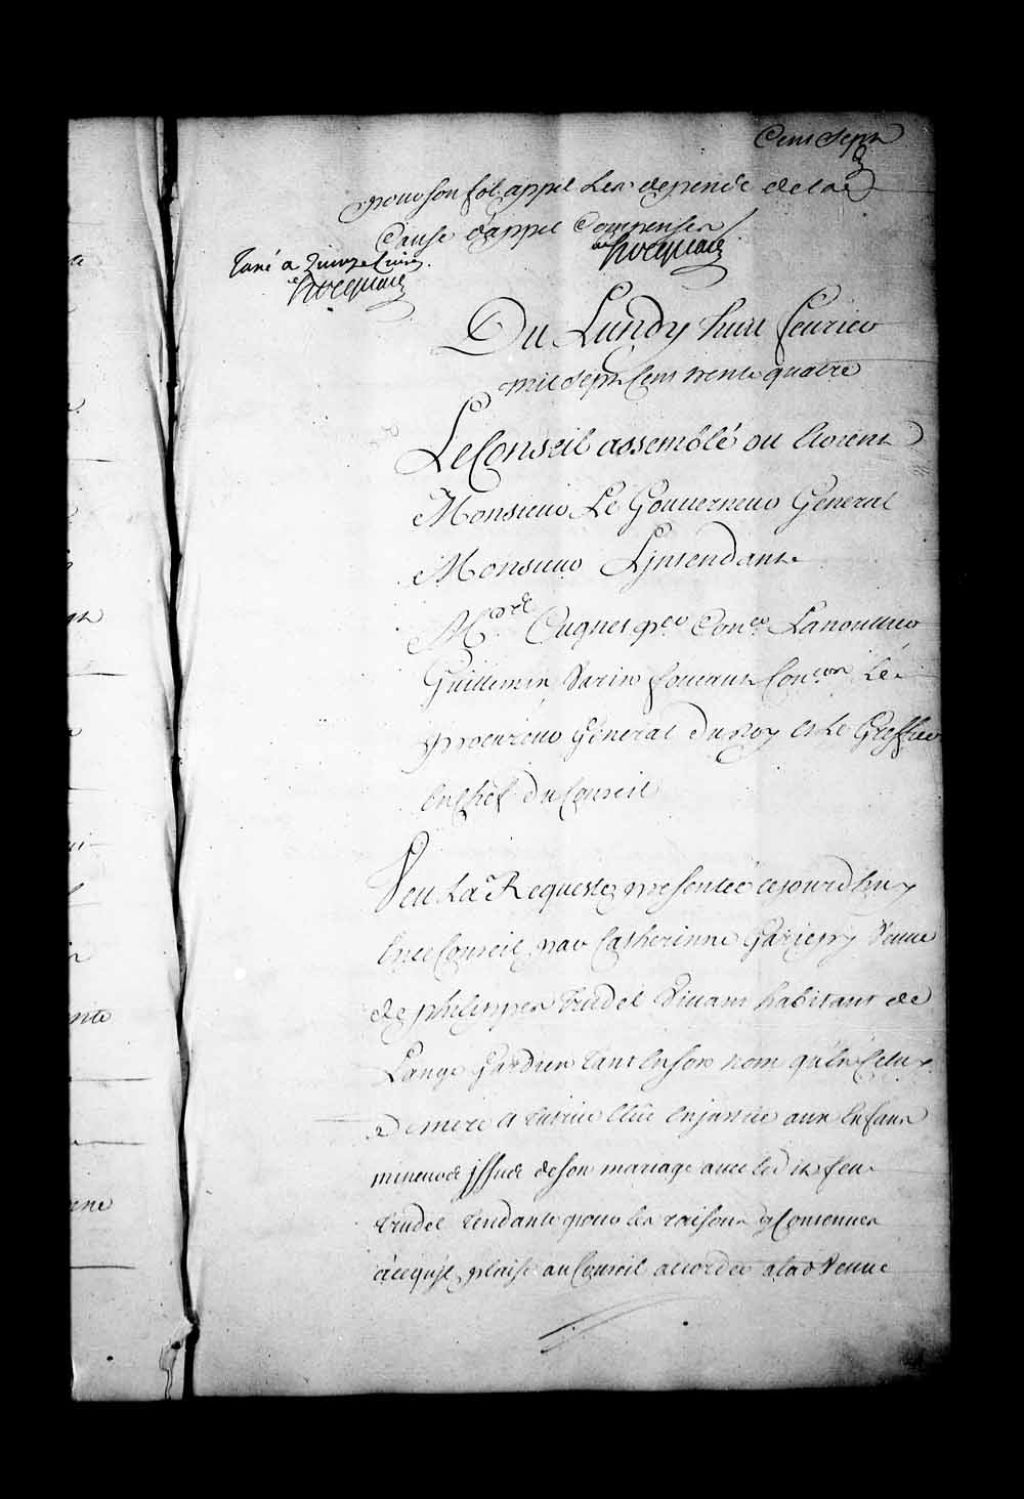 Cent Sept
pour son fol appel Les depends de la
Cause d'appel Compensés
hocquart
Taxé a Quinze Livres
hocquart
Du Lundy huit feurier
mil sept Cens trente quatre
Le Conseil assemblé ou Etoient
Monsieur Le Gouuerneur General
Monsieur Lintendant
Mrs Cugnet per Conser Lanoulier
Guillimin Varin foucault Coners Le
procureur General Du Roy et Le Greffier
En Chef Du Conseil
Veu La Requeste presentée cejourdhuy
En ce Conseil par Catherinne Gariepy Veuue
de philippes trudel Viuant habitant de
Lange Gardien tant En son nom qu'En Celuy
De mere et tutrice Elüe En justice aux Enfans
mineurs jssus de son mariage auec led it feu
trudel tendante pour les raisons y Contenues
a ce qu'jl plaise au Conseil accorder a lad Veuue
ite
ene